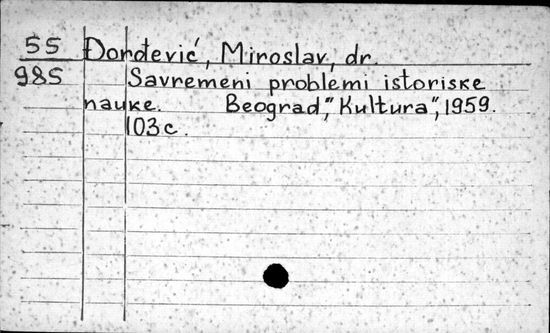 55 Đorđević, Miroslav, dr.
985 Savremeni problemi istoriske
nauke. Beograd, "Kultura", 1959.
103 c.